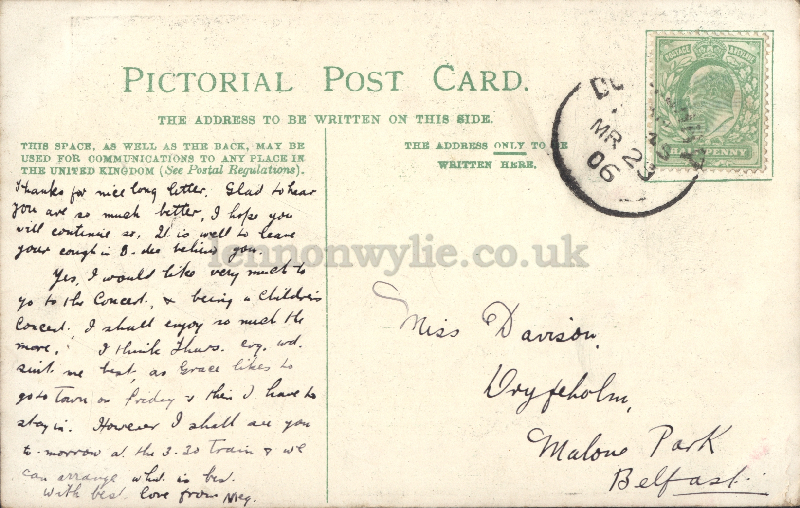 PICTORIAL POST CARD.
THE ADDRESS TO BE WRITTEN ON THIS SIDE.
THIS SPACE, AS WELL AS THE BACK, MAY BE
USED FOR COMMUNICATIONS TO ANY PLACE IN
THE UNITED KINGDOM (See Postal Regulations).
Thanks for nice long letter. Glad to hear
you are so much better, I hope you
will continue so. It is well to leave
your cough in B-dee behind you.
Yes, I would like very much to
go to the Concert, & being a Children's
Concert, I shall enjoy so much the
more. I think Thurs. evg. wd.
suit me best, as Grace likes to
go to Town on Friday & then I have to
stay in. However I shall see you
to-morrow at the 3-30 train & we
can arrange what is best.
With best love from Meg.
THE ADDRESS ONLY TO BE
WRITTEN HERE.
POSTAGE REVENUE
HALFPENNY
MR 23
06
Miss Davison,
Dryfeholm,
Malone Park
Belfast.
lennonwylie.co.uk